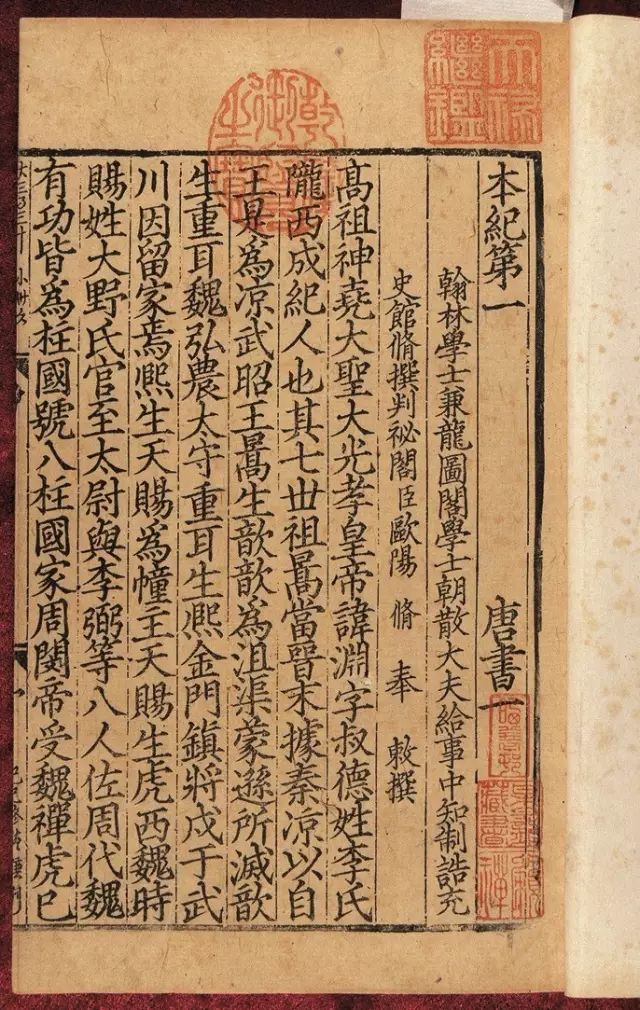 天祿繼鑑
乾隆御覽之寶
本紀第一 唐書一
翰林學士兼龍圖閣學士朝散大夫給事中知制誥充
史館脩撰判祕閣臣歐陽 脩 奉 敕撰
髙祖神堯大聖大光孝皇帝諱淵字叔德姓李氏
隴西成紀人也其七世祖暠當晉末據秦凉以自
王是爲凉武昭王暠生歆歆爲沮渠蒙遜所滅歆
生重耳魏弘農太守重耳生熈金門鎮將戍于武
川因留家焉熈生天賜爲幢主天賜生虎西魏時
賜姓大野氏官至太尉與李弼等八人佐周代魏
有功皆爲柱國號八柱國家周閔帝受魏禪虎已